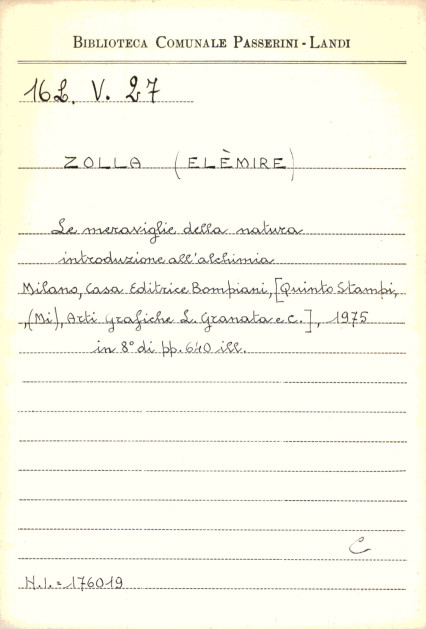 BIBLIOTECA COMUNALE PASSERINI - LANDI
16L. V. 27
ZOLLA (ELÈMIRE)
Le meraviglie della natura
introduzione all'alchimia
Milano, Casa Editrice Bompiani, [Quinto Stampi,
,(Mi), Arti Grafiche L. Granata e C.], 1975
in 8° di pp. 640 ill.
C
N.I.= 176019